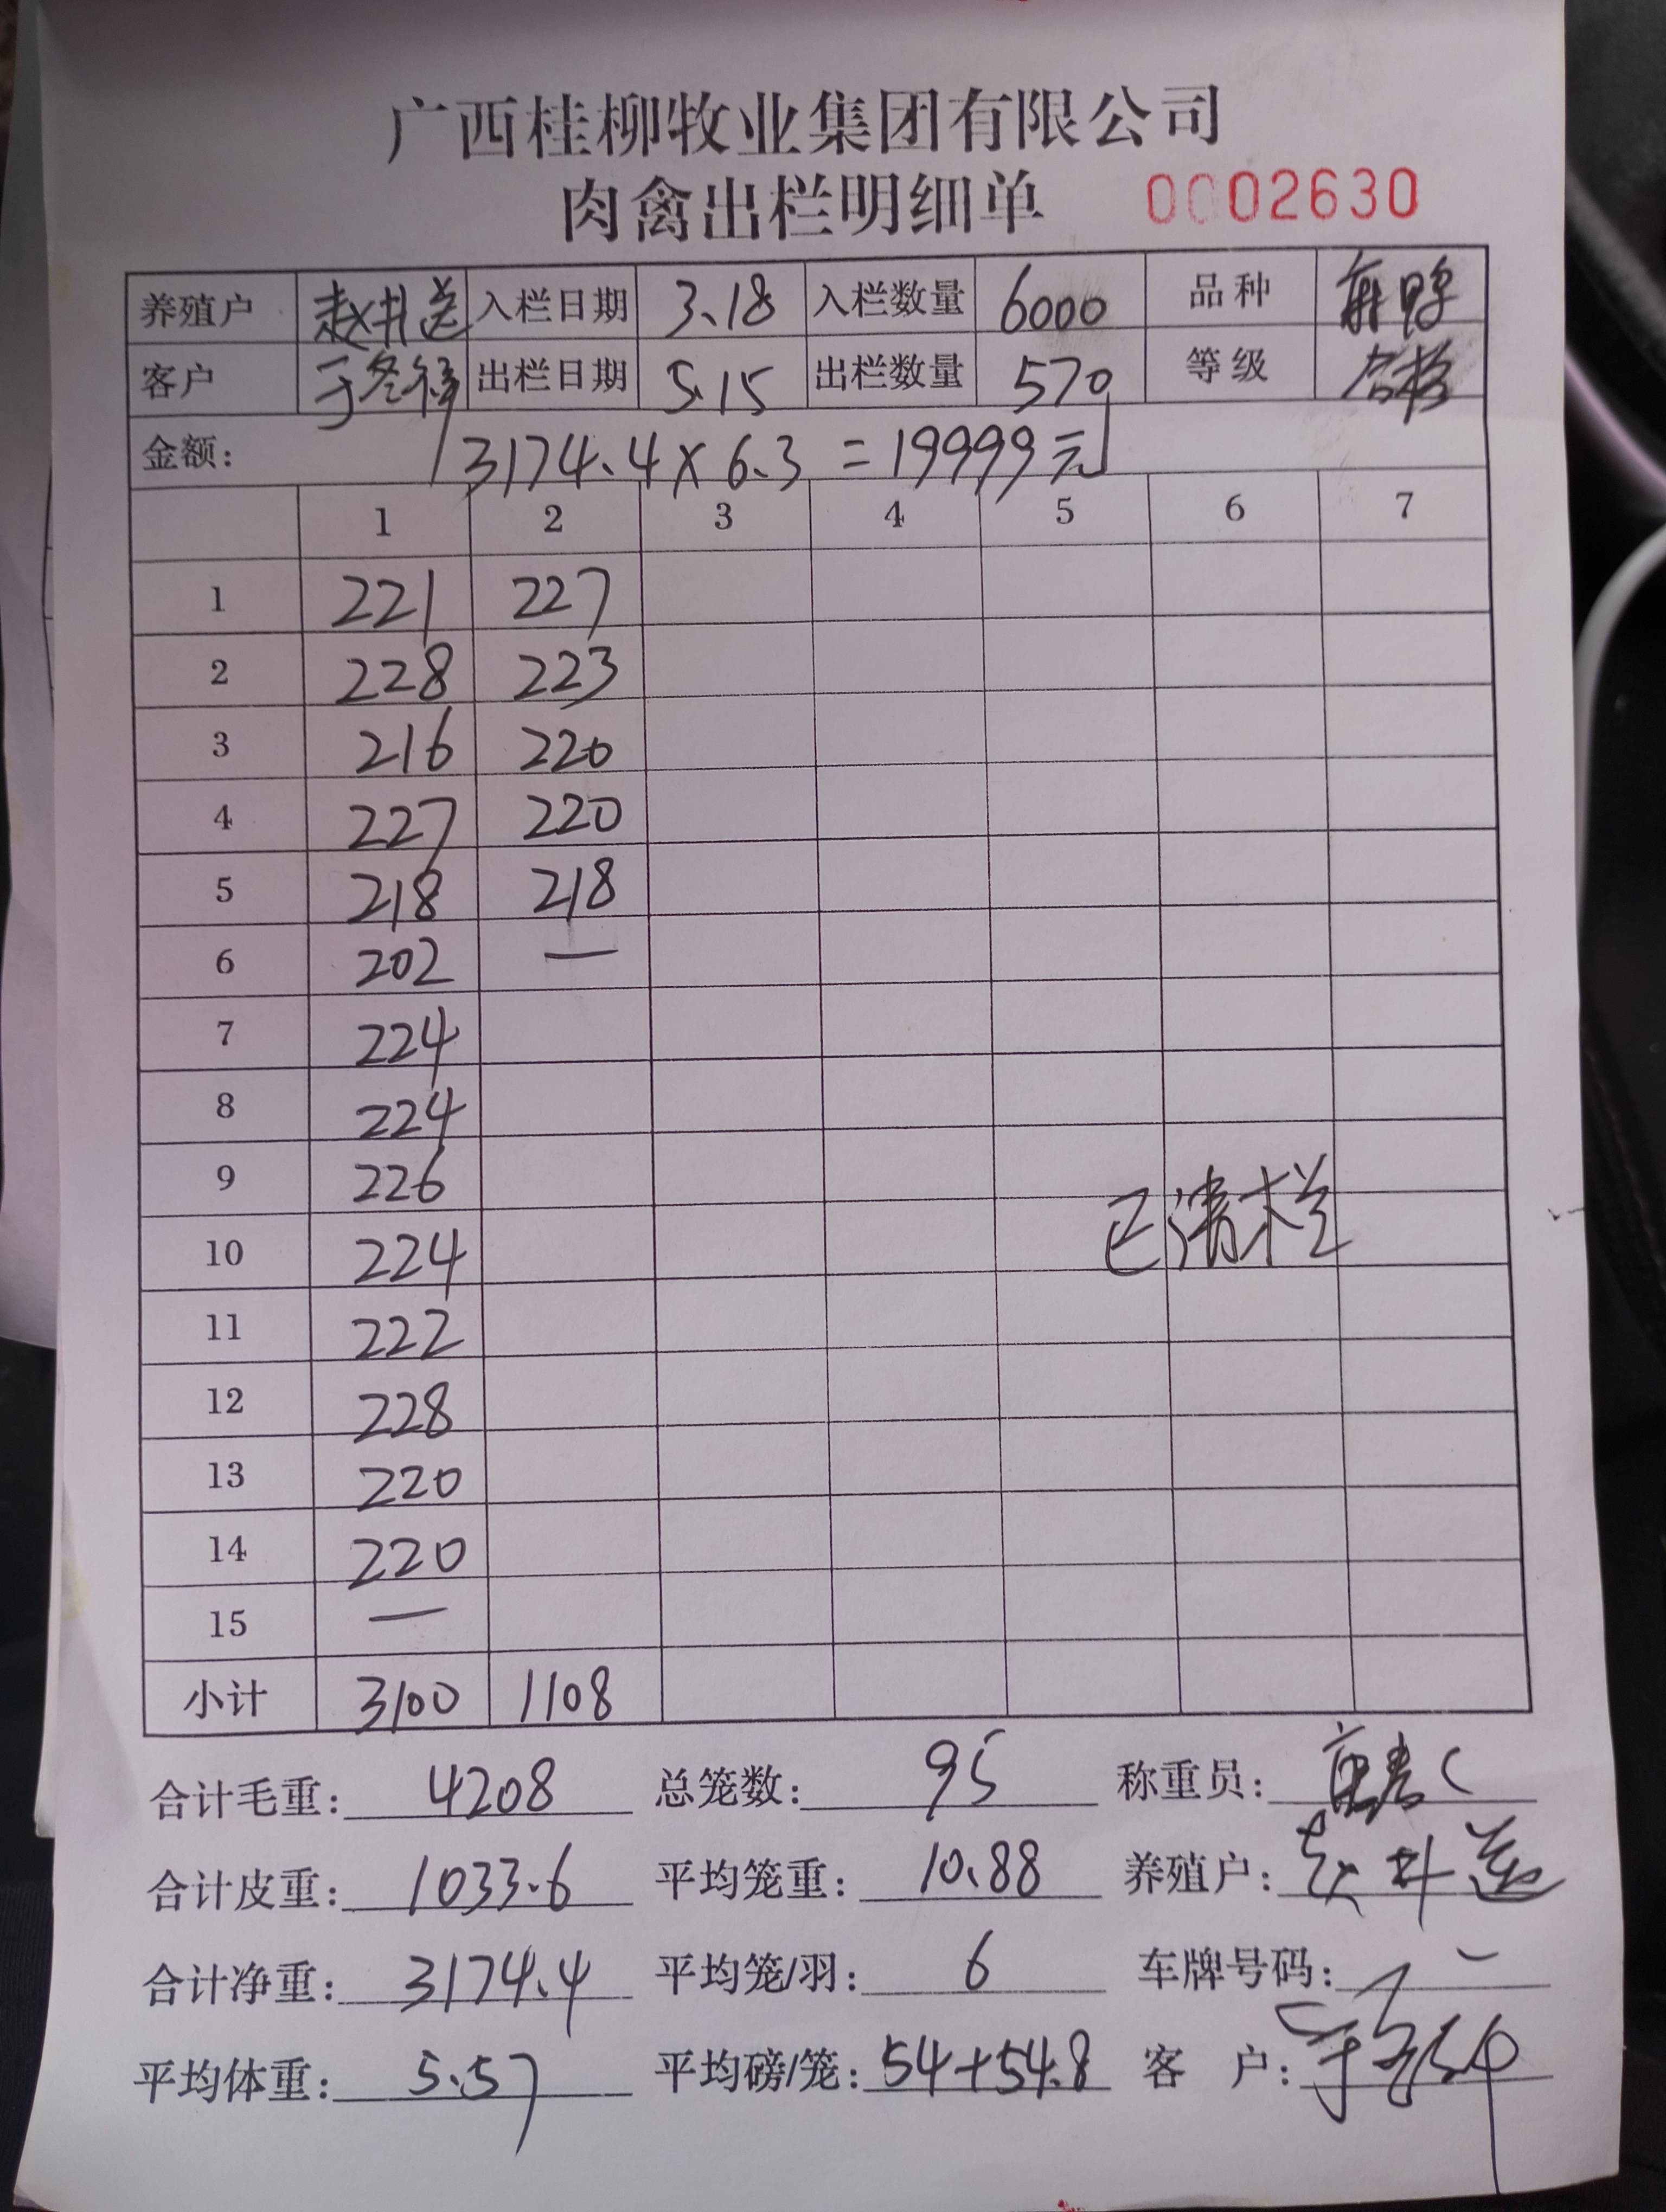 广西桂柳牧业集团有限公司
肉禽出栏明细单 0002630
养殖户 赵井送 入栏日期 3.18 入栏数量 6000 品种 麻鸭
客户 于冬禄 出栏日期 5.15 出栏数量 570 等级 合格
金额: 3174.4×6.3=19999元
1 2 3 4 5 6 7
1 221 227
2 228 223
3 216 220
4 227 220
5 218 218
6 202 —
7 224
8 224
9 226
10 224
已清栏
11 222
12 228
13 220
14 220
15 —
小计 3100 1108
合计毛重: 4208 总笼数: 95 称重员:
合计皮重: 1033.6 平均笼重: 10.88 养殖户: 赵井送
合计净重: 3174.4 平均笼/羽: 6 车牌号码:
平均体重: 5.57 平均磅/笼: 54+54.8 客户: